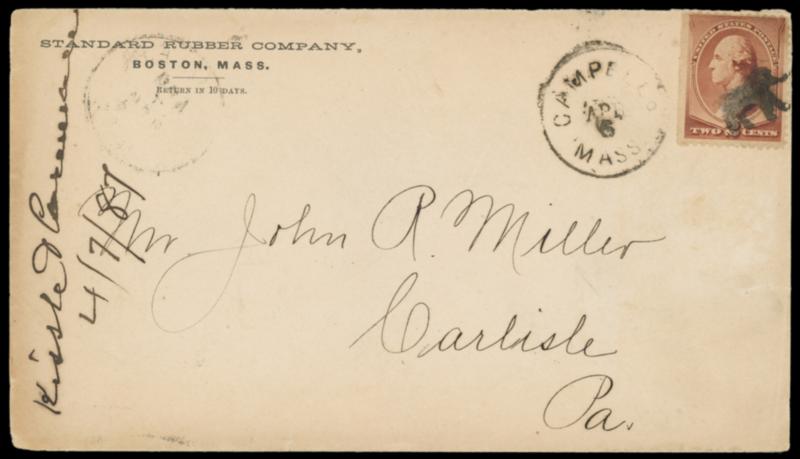 STANDARD RUBBER COMPANY,
BOSTON, MASS.
RETURN IN 10 DAYS.
CAMPELLO
APR
6
MASS
UNITED STATES POSTAGE
TWO CENTS
Mr. John R. Miller
Carlisle
Pa.
4/7/87